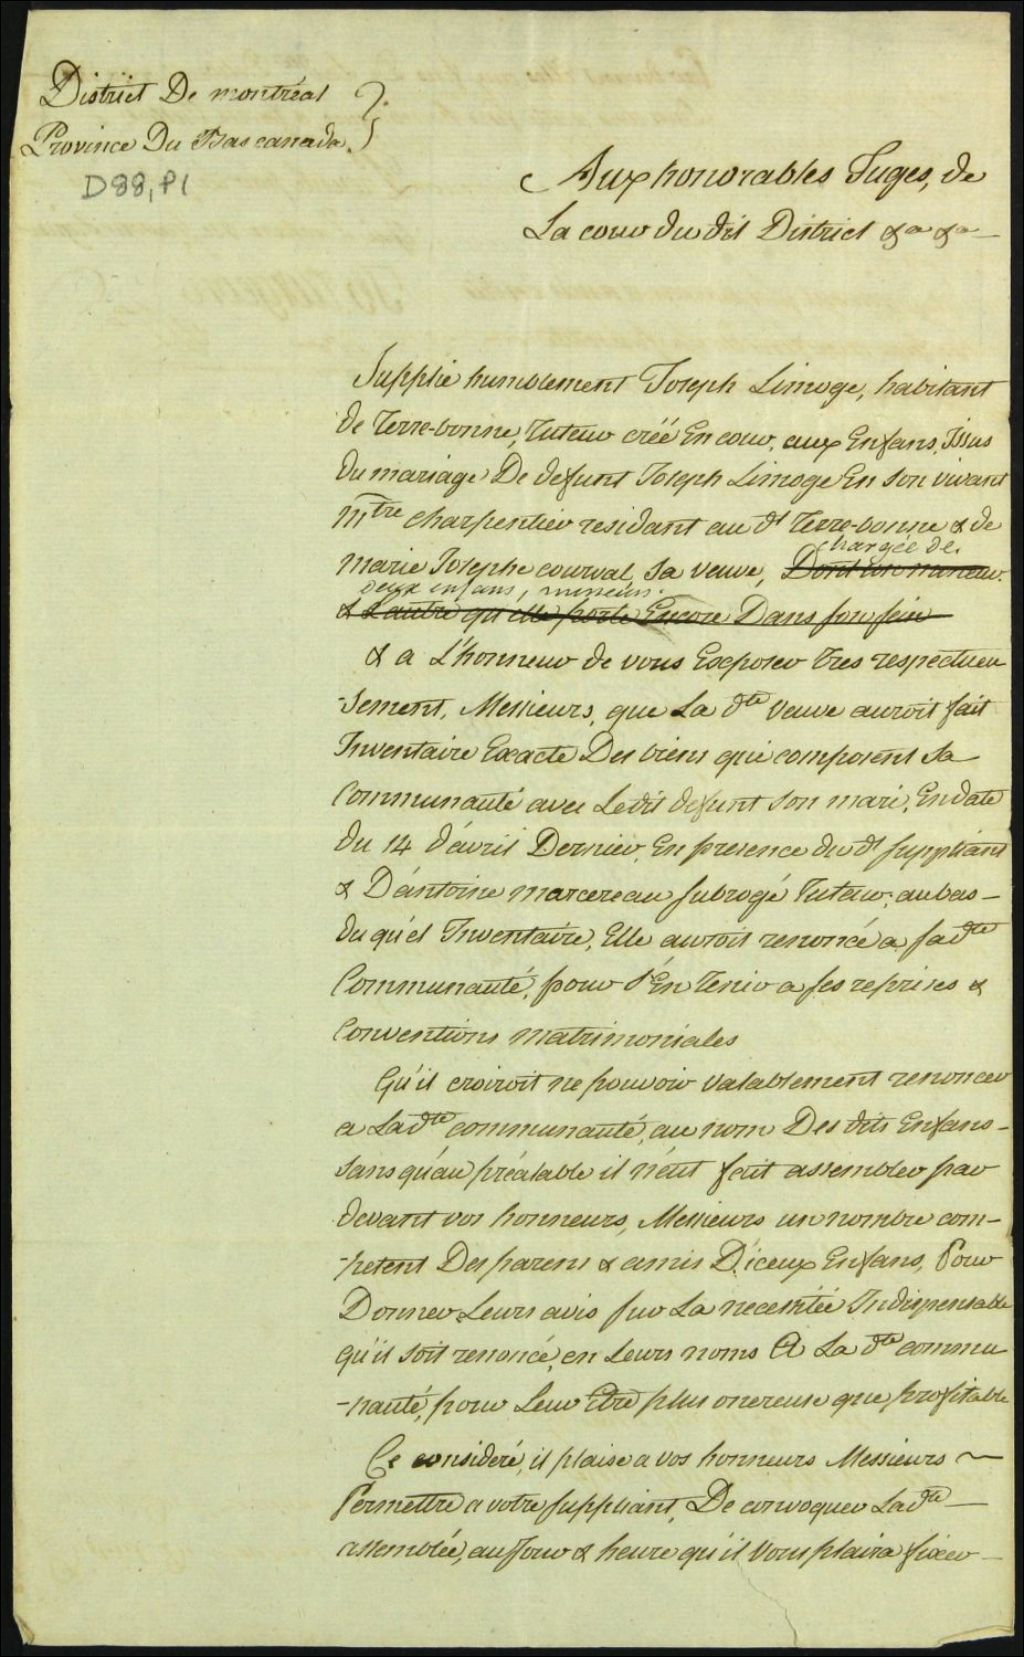 District De montréal
Province Du Bas canada.
D88, P1
Aux honorables Juges, de
La cour du dit District &a &a
Supplie humblement Joseph Limoge, habitant
de Terre-bonne, Tuteur créé En cour, aux Enfans Issus
du mariage De defunt Joseph Limoge En son vivant
mtre charpentier residant au dt Terre-bonne & de
chargée de
marie Josephe courval, sa veuve, Dont un mineur
deux enfans, mineurs.
& L'autre qu'elle porte Encore Dans son sein
& a L'honneur de vous Exposer tres respectueu
-sement, Messieurs, que La dte veuve auroit fait
Inventaire Exacte Des biens qui composent sa
Communauté avec Ledit defunt son mari, En date
du 14 d'avril Dernier, En presence du dt suppliant
& D'antoine marcereau subrogé Tuteur; au bas
du quel Inventaire, Elle auroit renoncé a sa dte
Communauté, pour s'En Tenir a ses reprises &
Conventions matrimoniales
Qu'il croiroit ne pouvoir valablement renoncer
a La dte communauté, au nom Des dits Enfans
sans qu'au préalable il n'eut fait assembler par
devant vos honneurs, Messieurs un nombre com-
-petent Des parens & amis D'iceux Enfans, Pour
Donner Leurs avis sur La necessitée Indispensable
qu'il soit renoncé, en Leurs noms A La dte commu
-nauté, pour Leur Etre plus onereuse que profitable
Ce consideré, il plaise a vos honneurs Messieurs
Permettre a votre suppliant, De convoquer La dte
assemblée, au Jour & heure qu'il vous plaira fixer